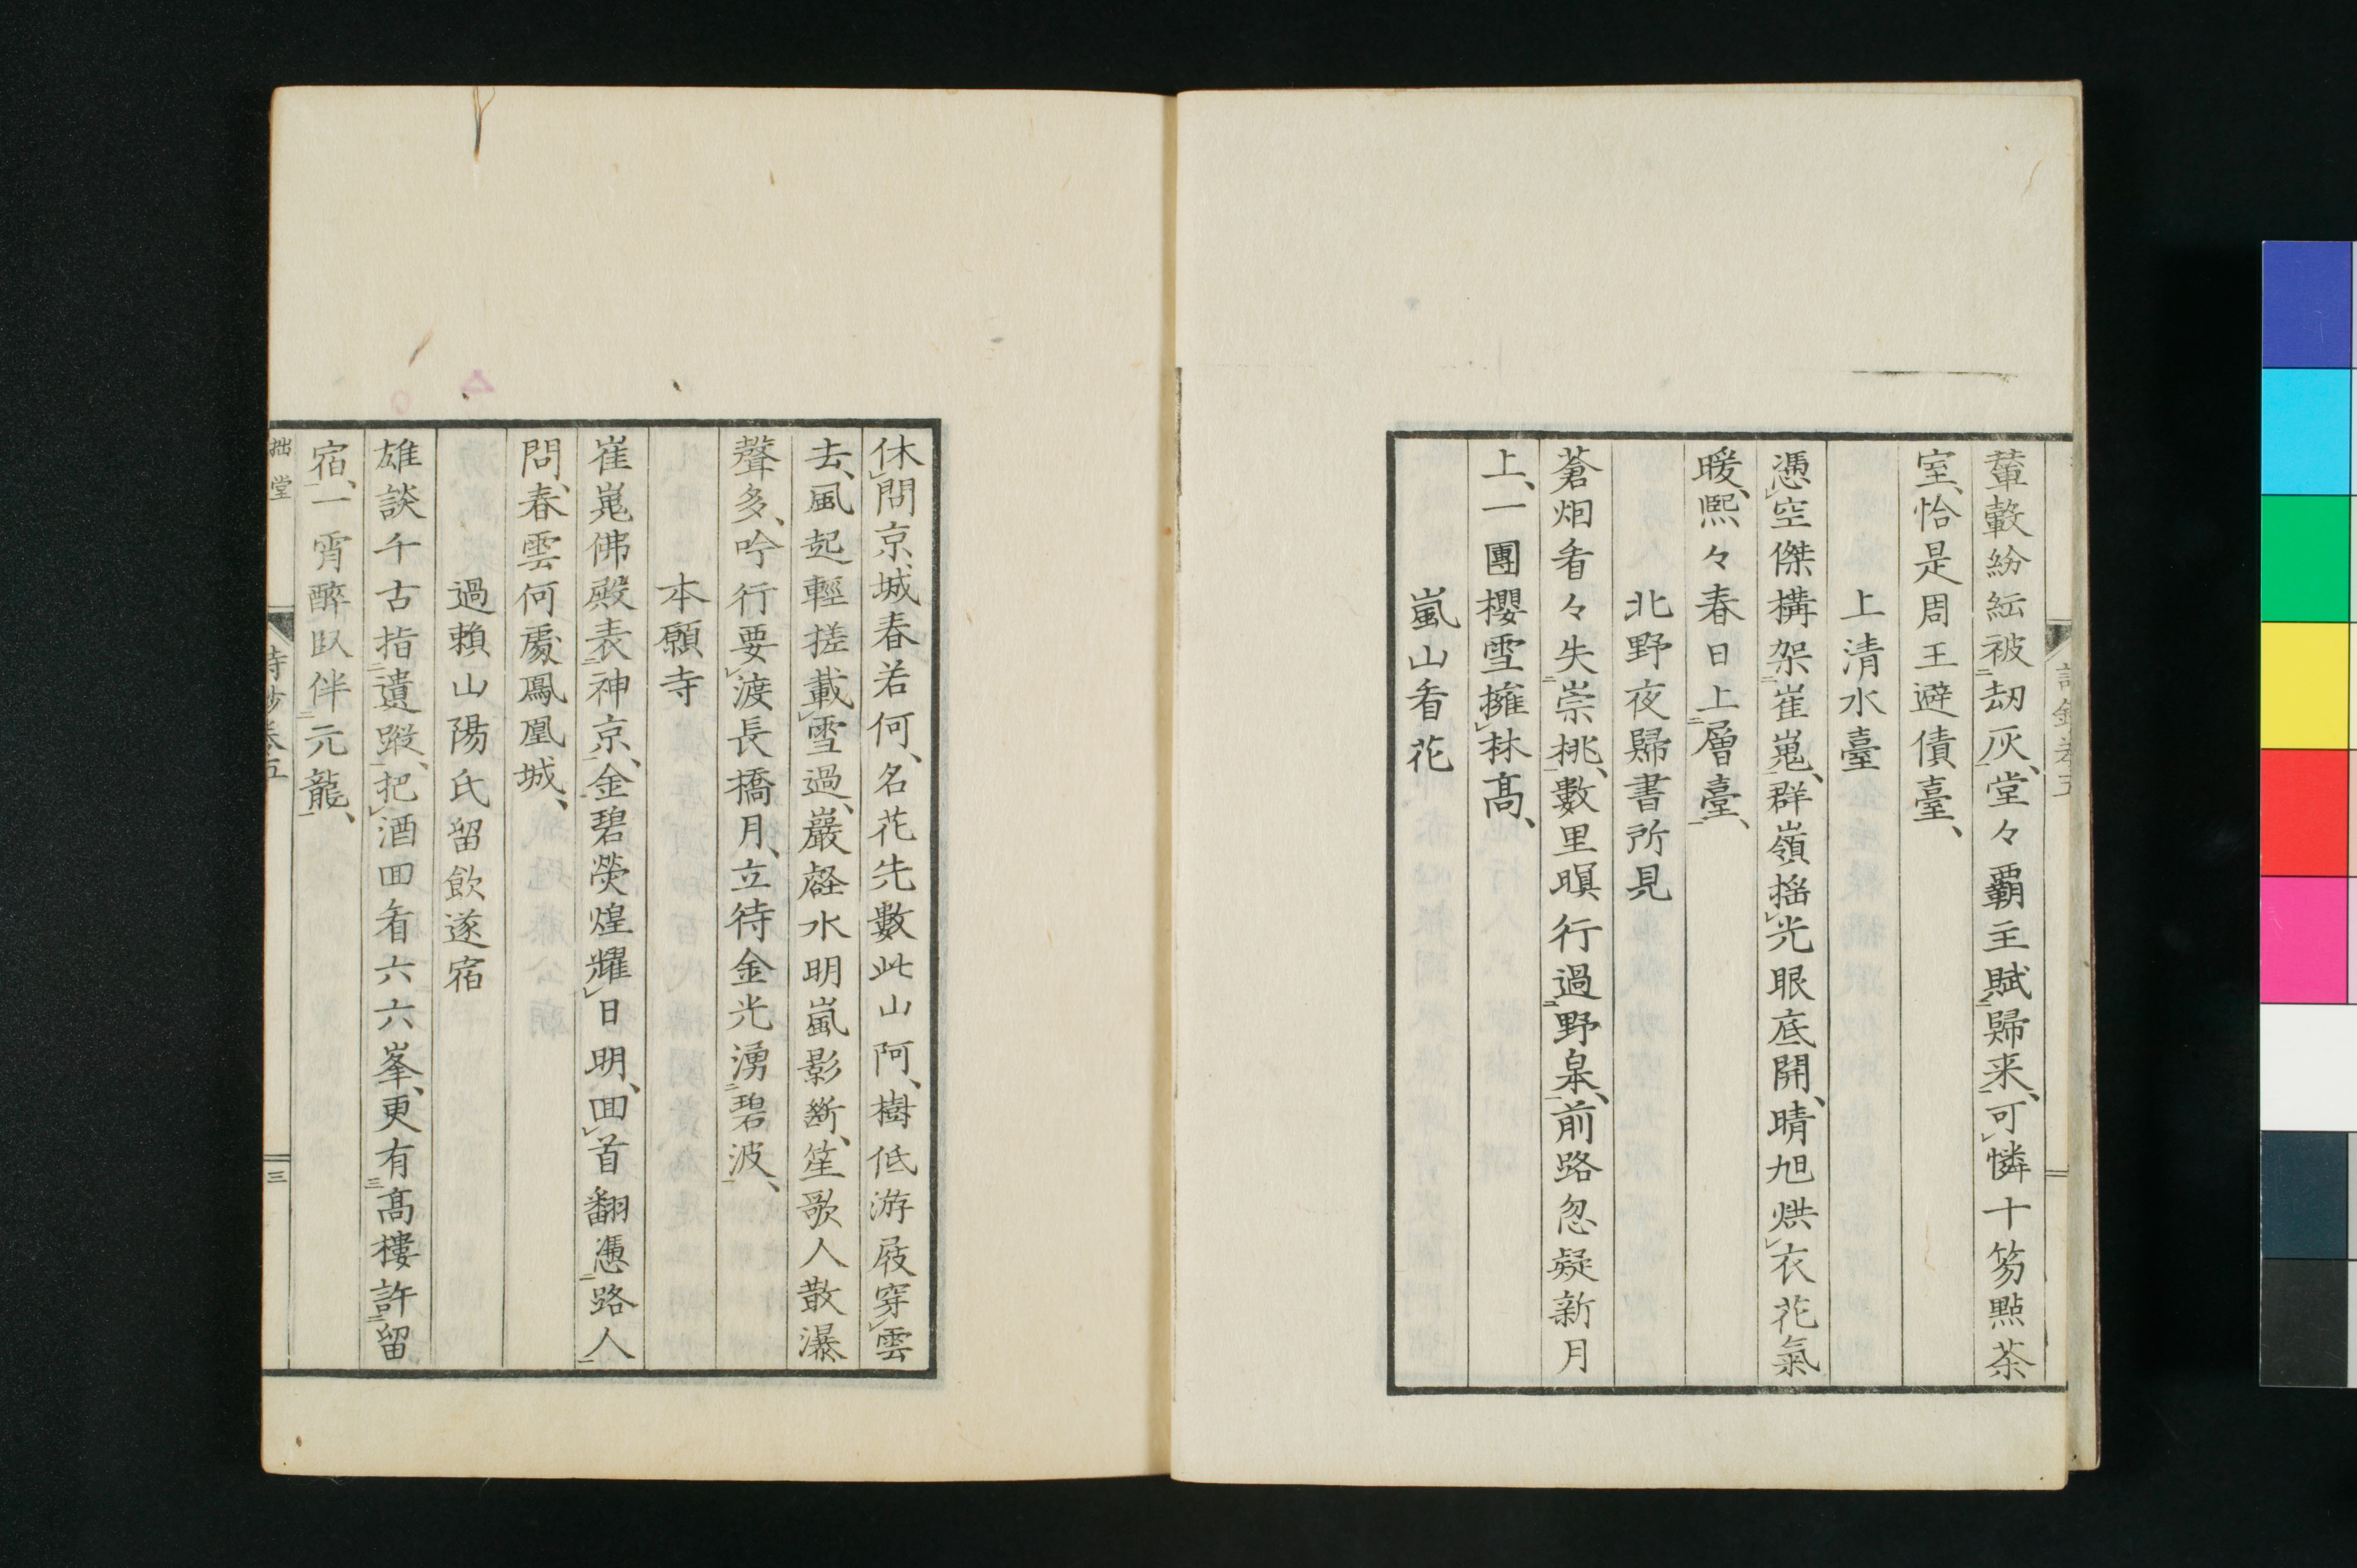 輦轂紛紜被劫灰、堂々覇主賦歸来、可憐十笏點茶
室、恰是周王避債臺、
上清水臺
憑空傑構架崔嵬、群嶺揺光眼底開、晴旭烘衣花氣
暖、熙々春日上層臺、
北野夜歸書所見
蒼烟看々失崇桃、數里暝行過野皐、前路忽疑新月
上、一團櫻雪擁林髙、
嵐山看花
休問京城春若何、名花先數此山阿、樹低游屐穿雲
去、風起輕搓載雪過、巖壑水明嵐影斷、笙歌人散瀑
聲多、吟行要渡長橋月、立待金光湧碧波、
本願寺
崔嵬佛殿表神京、金碧熒煌耀日明、回首翻憑路人
問、春雲何處鳳凰城、
過賴山陽氏留飲遂宿
雄談千古指遺蹤、把酒回看六六峯、更有髙樓許留
宿、一宵醉臥伴元龍、
拙堂
詩鈔卷五
三